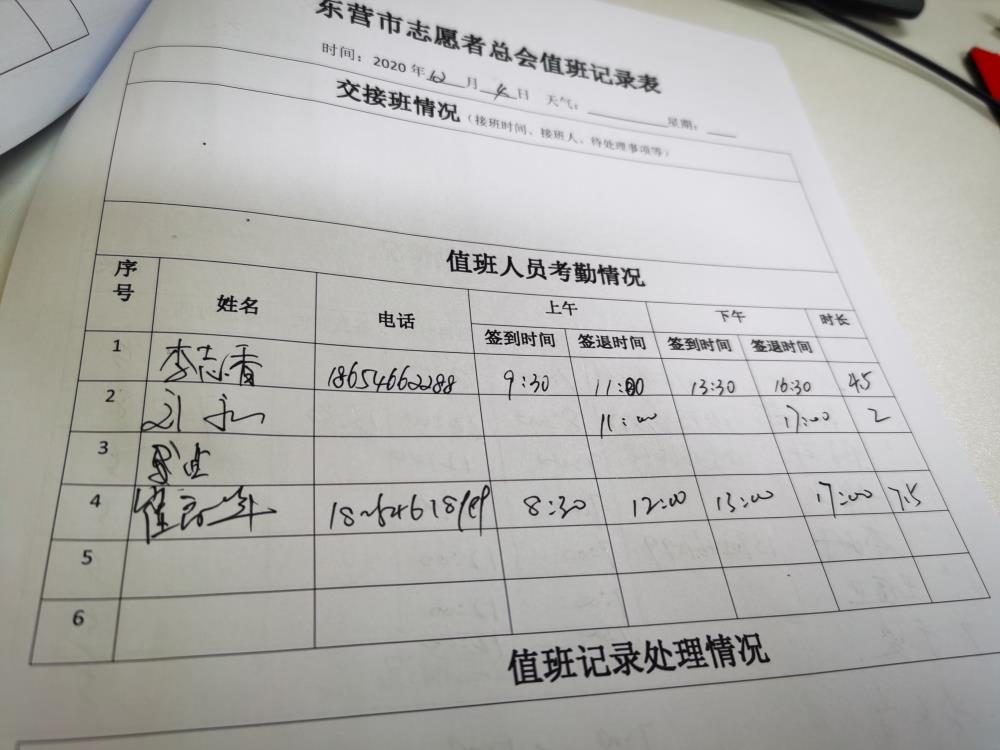 东营市志愿者总会值班记录表
时间：2020年12月4日 天气： 星期：
交接班情况（接班时间、接班人、待处理事项等）
值班人员考勤情况
序号 姓名 电话 上午 下午 时长
签到时间 签退时间 签到时间 签退时间
1 李志香 18654662288 9:30 11:00 13:30 16:30 4.5
2 刘 11:00 17:00 2
3
4 8:30 12:00 13:00 17:00 7.5
5
6
值班记录处理情况